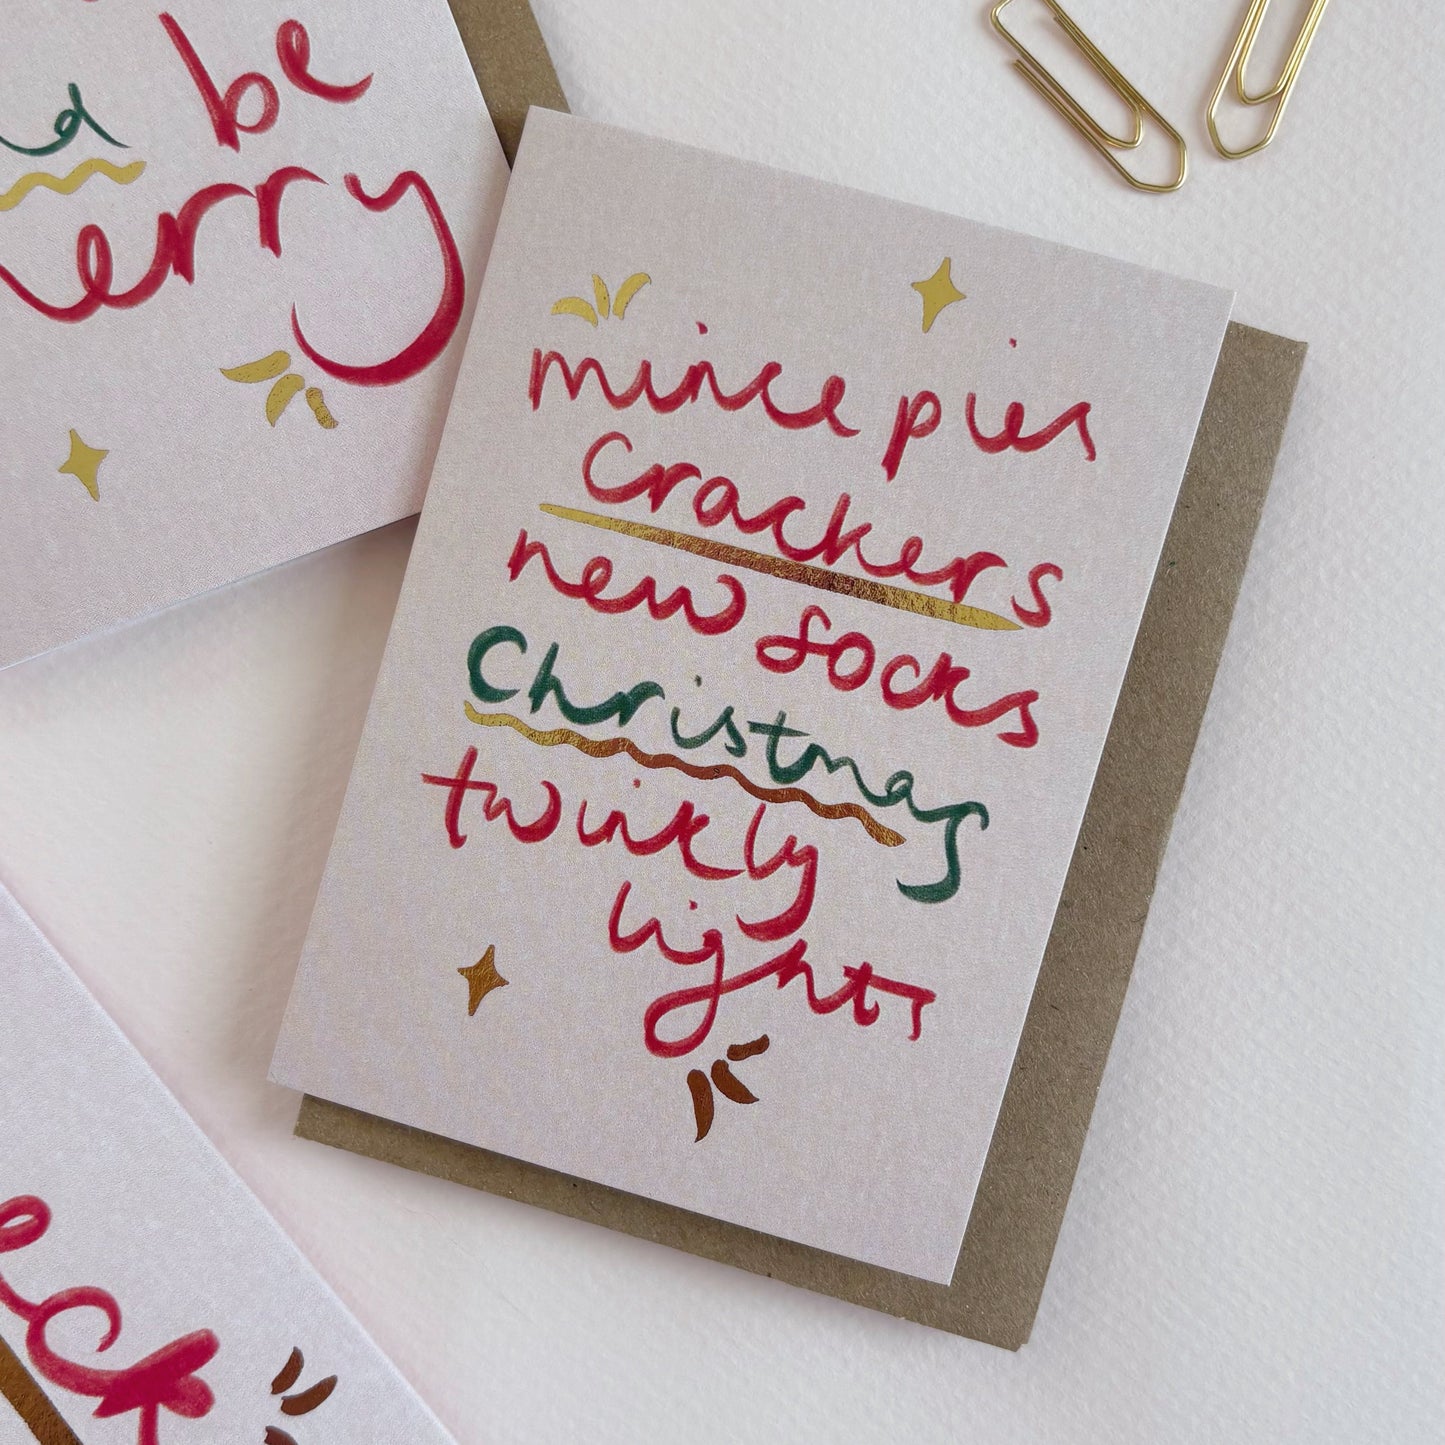 be
erry
mince pies
crackers
new socks
Christmas
twinkly
lights